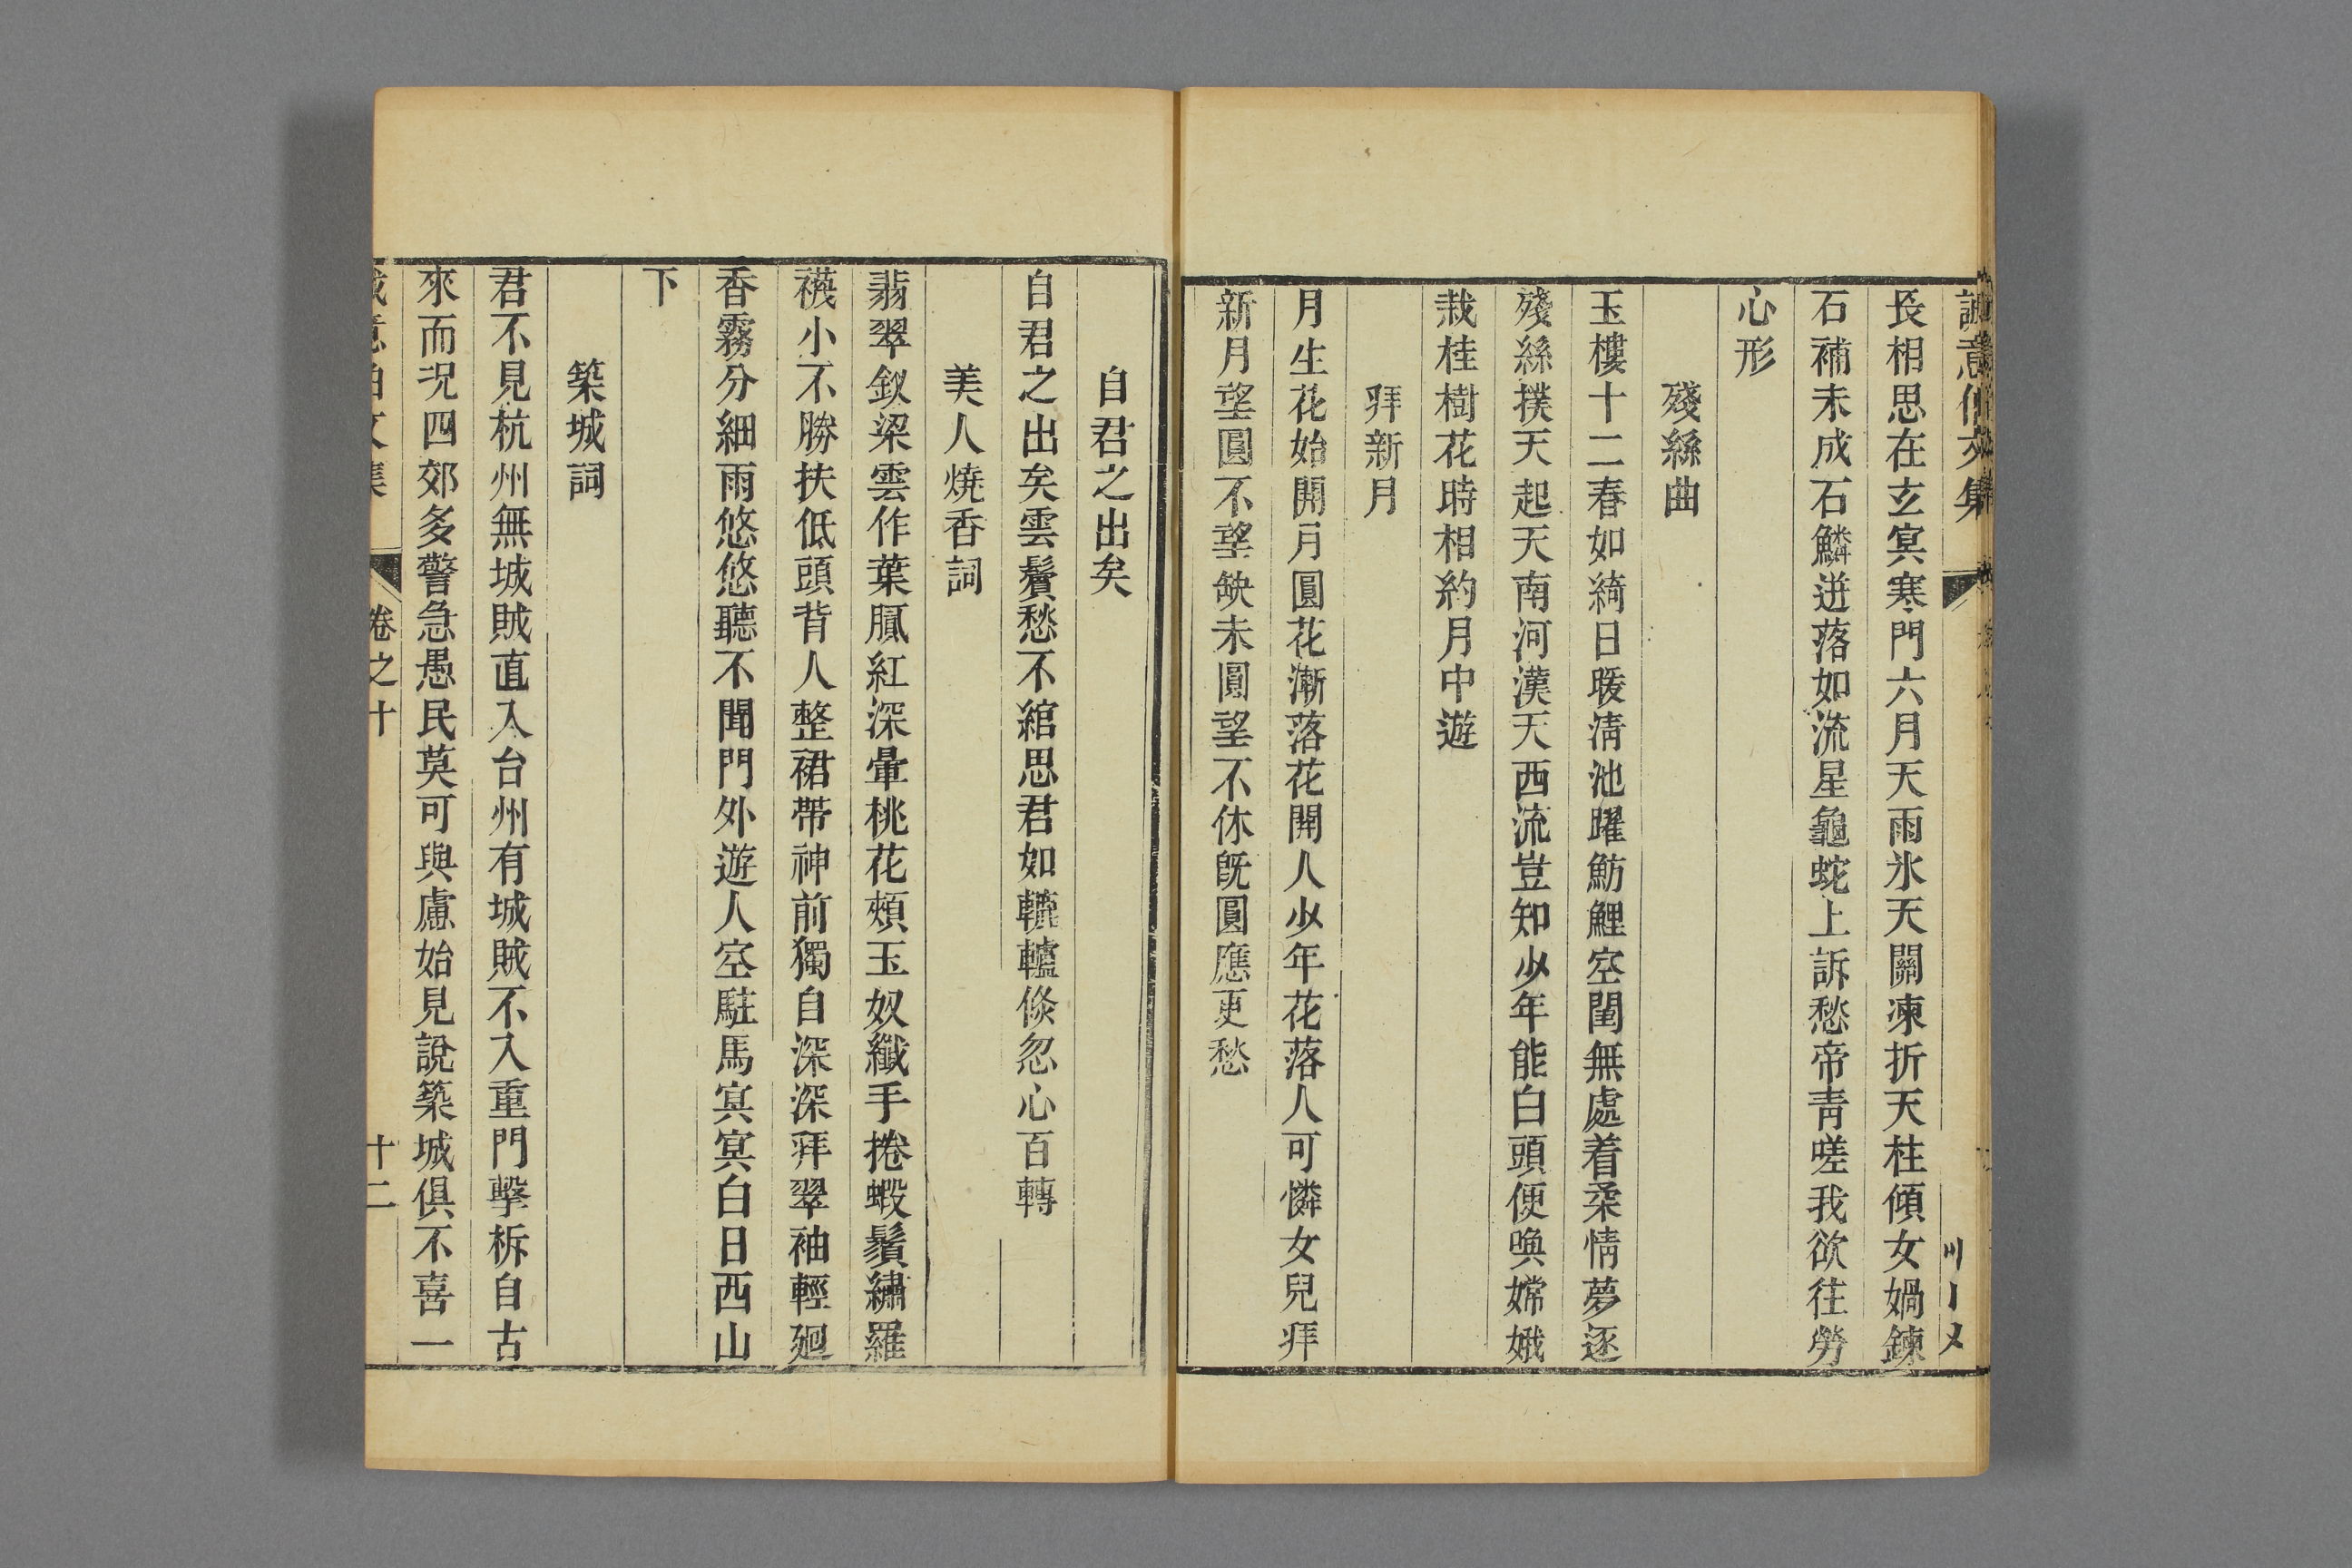 誠意伯文集
長相思在玄冥寒門六月天雨氷天關凍折天柱傾女媧鍊
石補未成石鱗迸落如流星龜蛇上訴愁帝靑嗟我欲往勞
心形
殘絲曲
玉樓十二春如綺日暖淸池躍魴鯉空閨無處着柔情夢逐
殘絲撲天起天南河漢天西流豈知少年能白頭便喚嫦娥
栽桂樹花時相約月中遊
拜新月
月生花始開月圓花漸落花開人少年花落人可憐女兒拜
新月望圓不望缺未圓望不休旣圓應更愁
自君之出矣
自君之出矣雲鬢愁不綰思君如轆轤倏忽心百轉
美人燒香詞
翡翠釵梁雲作葉膩紅深暈桃花頰玉奴纖手捲蝦鬚繡羅
襪小不勝扶低頭背人整裙帶神前獨自深深拜翠袖輕廻
香霧分細雨悠悠聽不聞門外遊人空駐馬冥冥白日西山
下
築城詞
君不見杭州無城賊直入台州有城賊不入重門擊柝自古
來而況四郊多警急愚民莫可與慮始見說築城俱不喜一
誠意伯文集 卷之十 十二